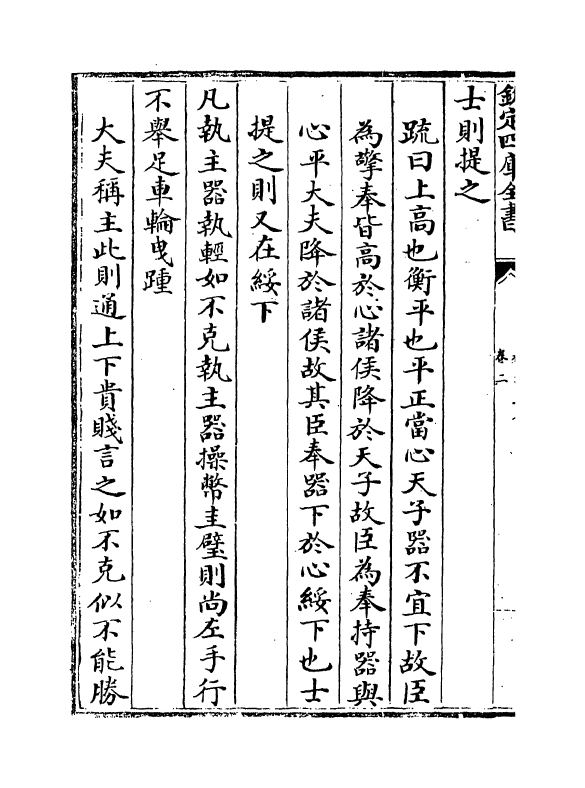 欽定四庫全書
卷二
士則提之
疏曰上高也衡平也平正當心天子器不宜下故臣
為擎奉皆高於心諸侯降於天子故臣為奉持器與
心平大夫降於諸侯故其臣奉器下於心綏下也士
提之則又在綏下
凡執主器執輕如不克執主器操幣圭璧則尚左手行
不舉足車輪曳踵
大夫稱主此則通上下貴賤言之如不克似不能勝